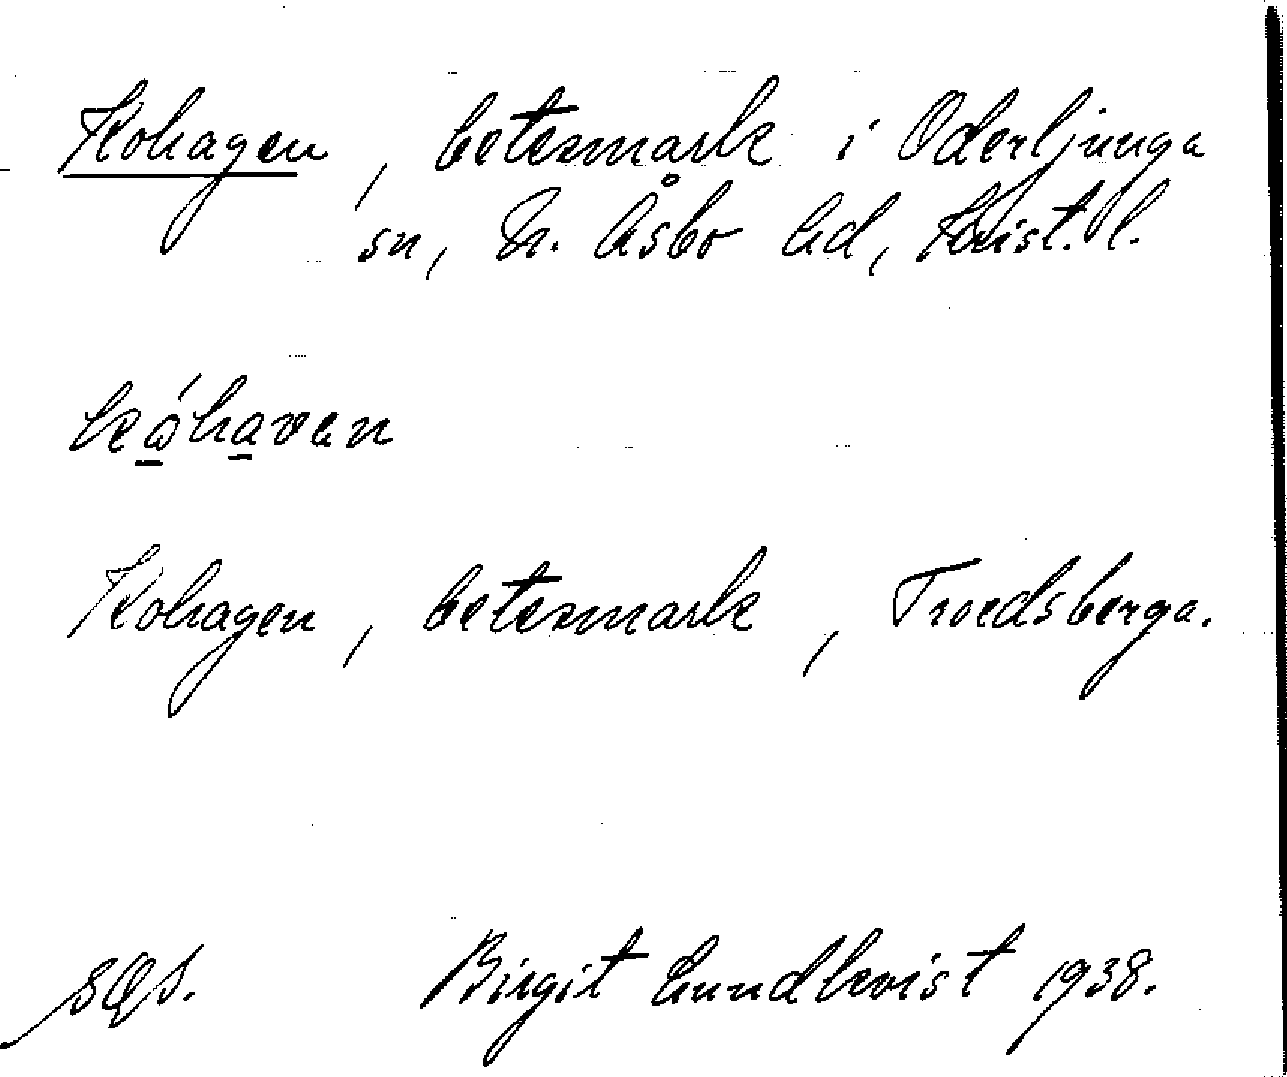 Kohagen, betesmark i Oderljunga
sn, N. Åsbo hd, Krist. l.
kóhavan
Kohagen, betesmark, Troedsberga.
Birgit Lundkvist 1938.